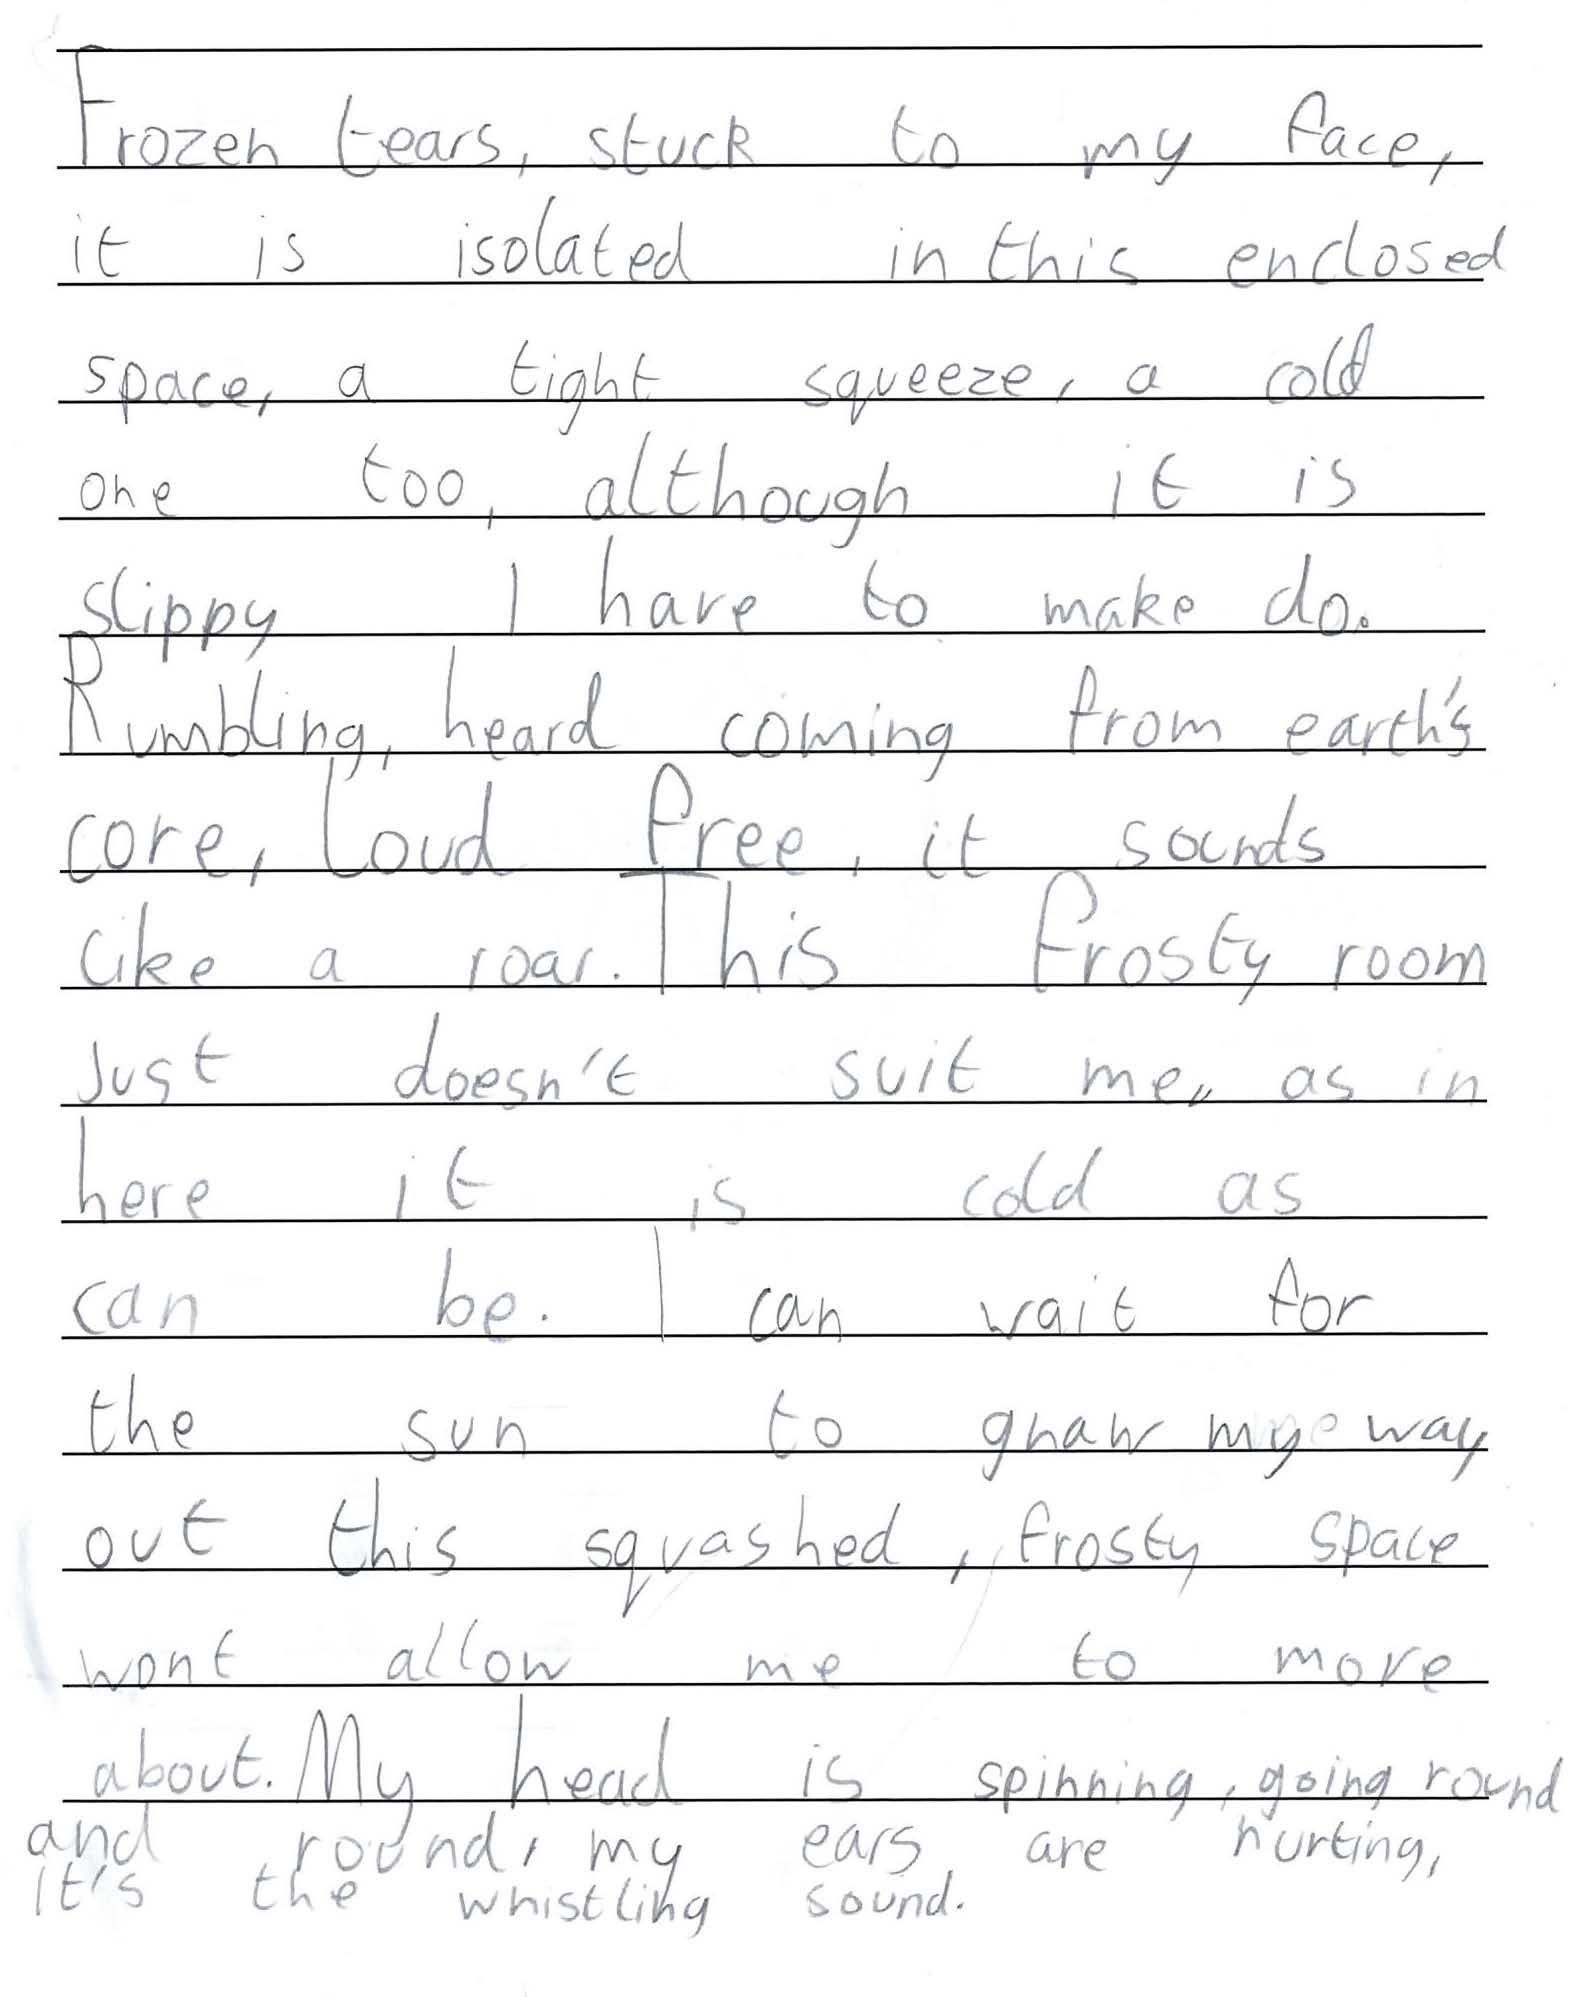 Frozen tears, stuck to my face,
it is isolated in this enclosed
space, a tight squeeze, a cold
one too, although it is
slippy I have to make do.
Rumbling, heard coming from earth's
core, loud free, it sounds
like a roar. This frosty room
just doesn't suit me,, as in
here it is cold as
can be. I can wait for
the sun to gnaw my way
out this squashed, frosty space
wont allow me to move
about. My head is spinning, going round
and round, my ears are hurting,
it's the whistling sound.